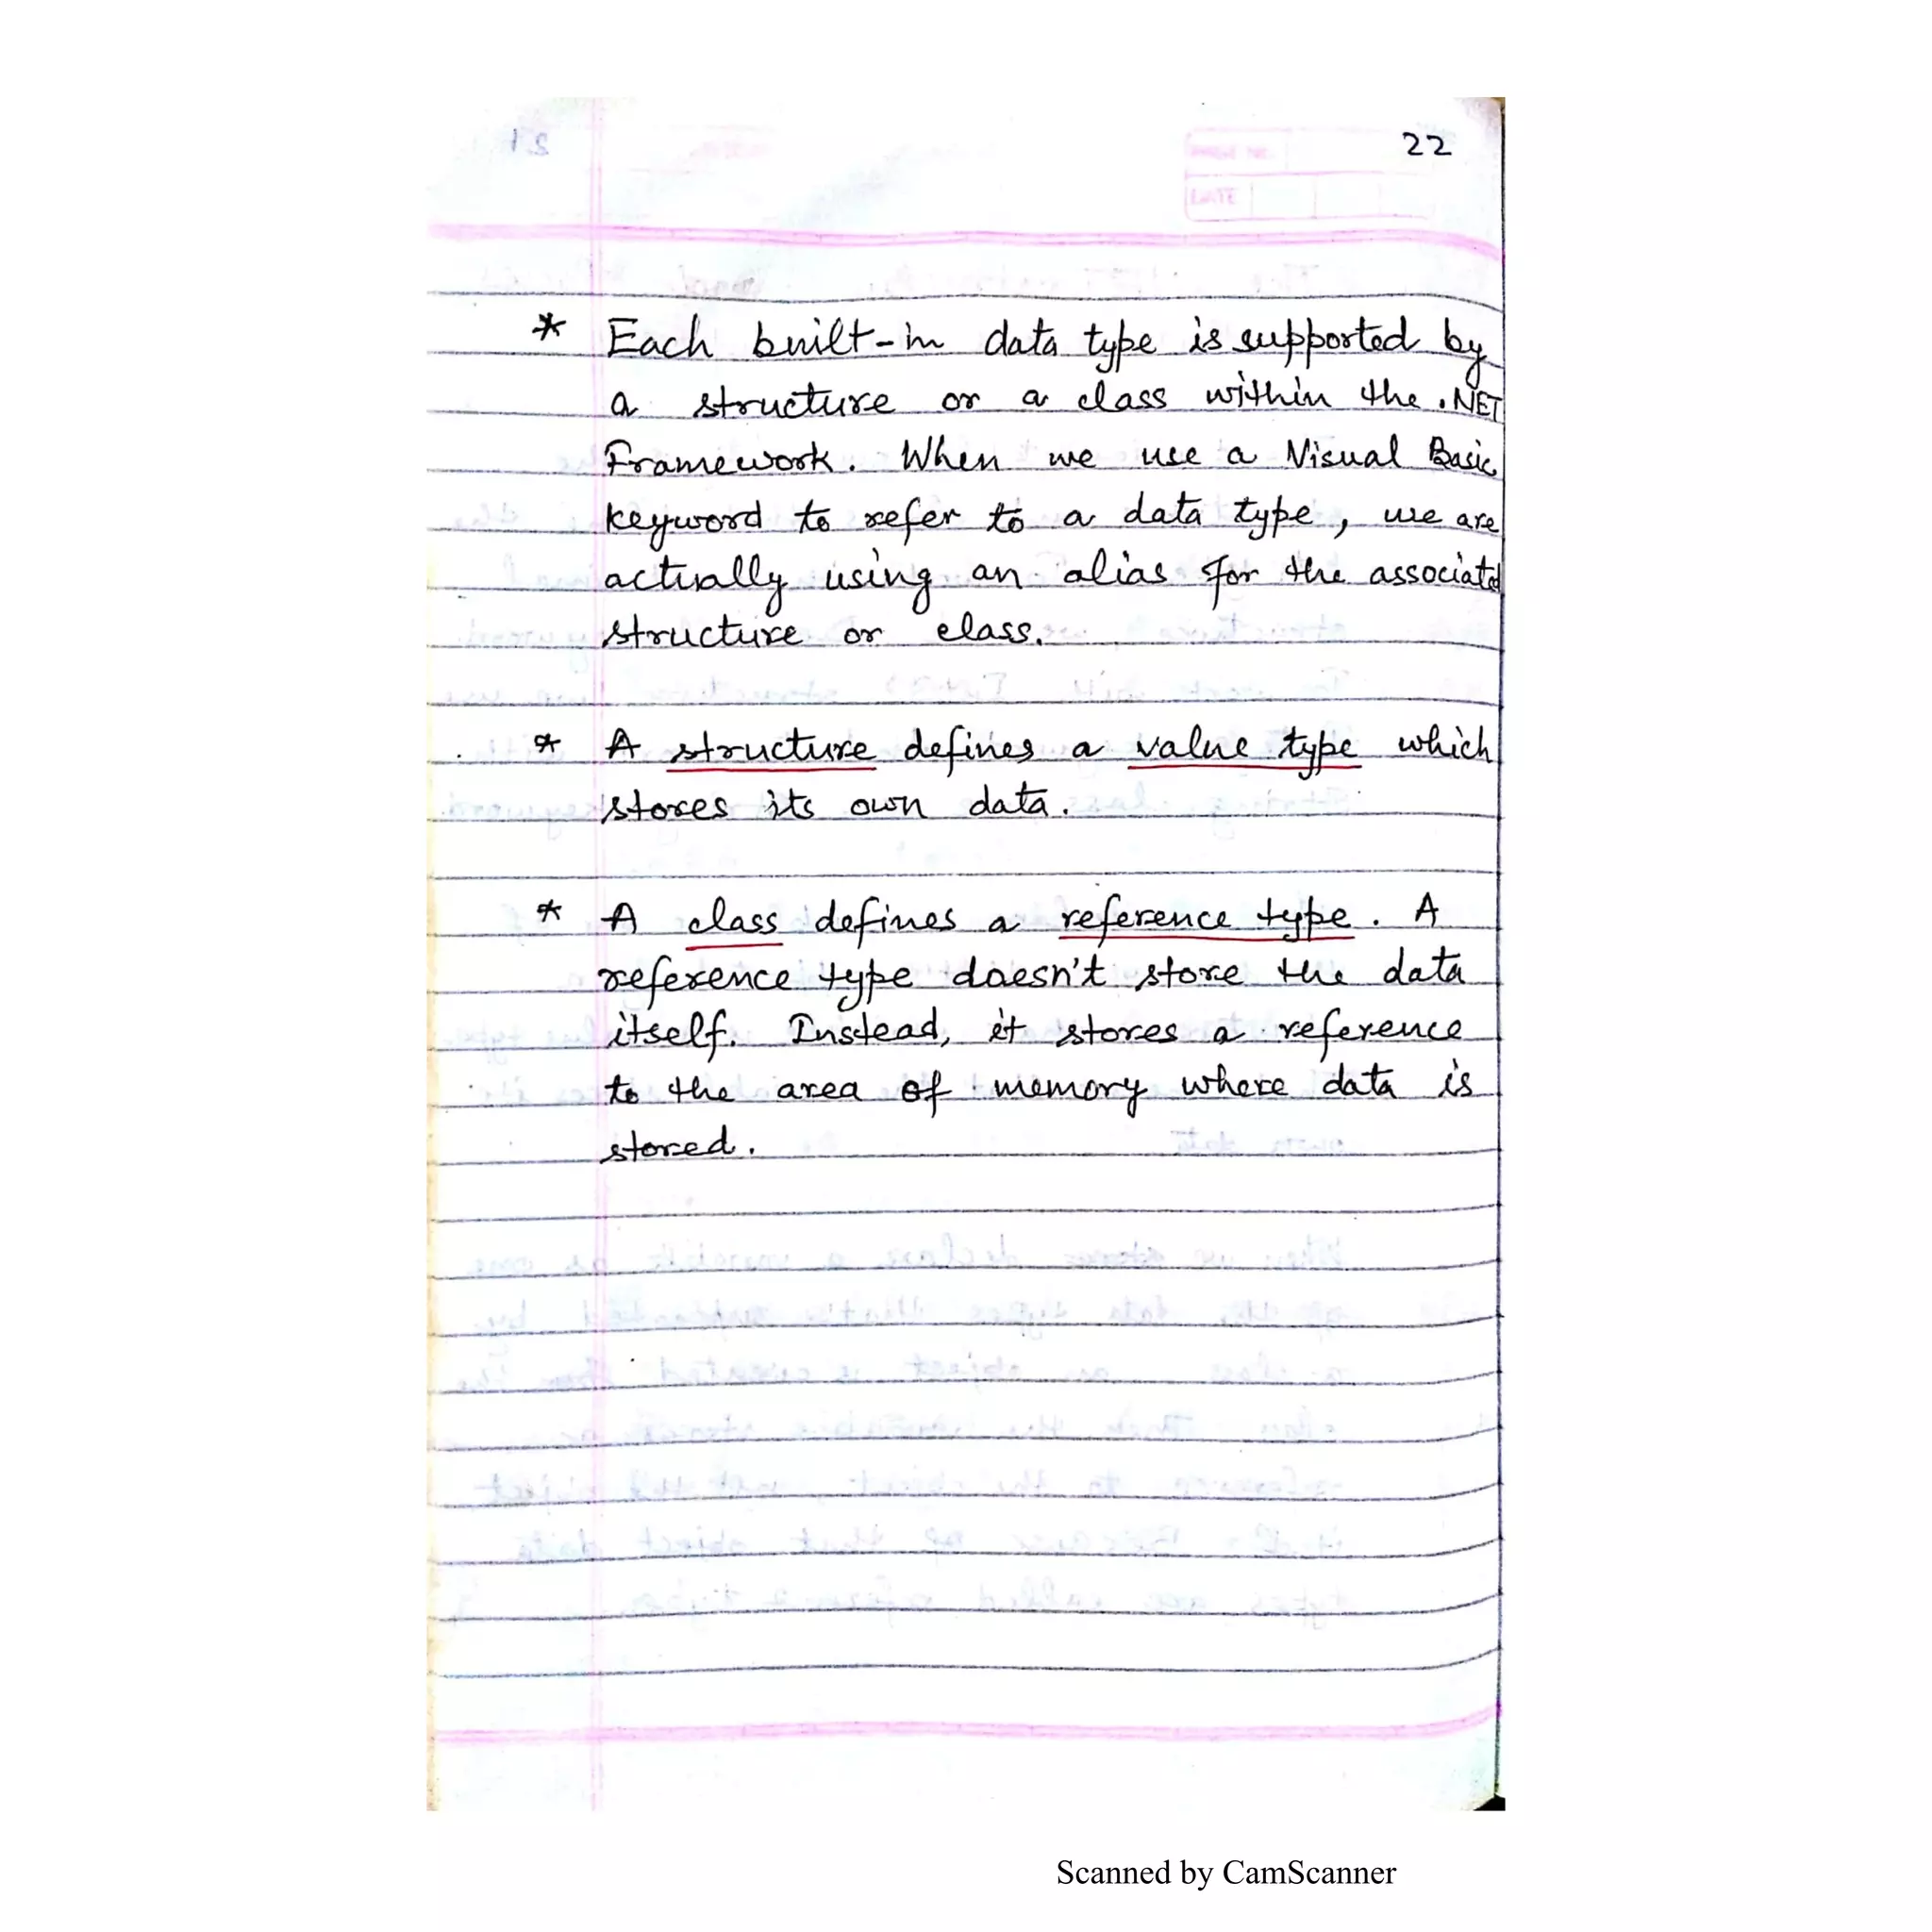 22
DATE
* Each built-in data type is supported by
a structure or a class within the .NET
Framework. When we use a Visual Basic
keyword to refer to a data type, we are
actually using an alias for the associated
structure or class.
* A structure defines a value type which
stores its own data.
* A class defines a reference type. A
reference type doesn't store the data
itself. Instead, it stores a reference
to the area of memory where data is
stored.
Scanned by CamScanner